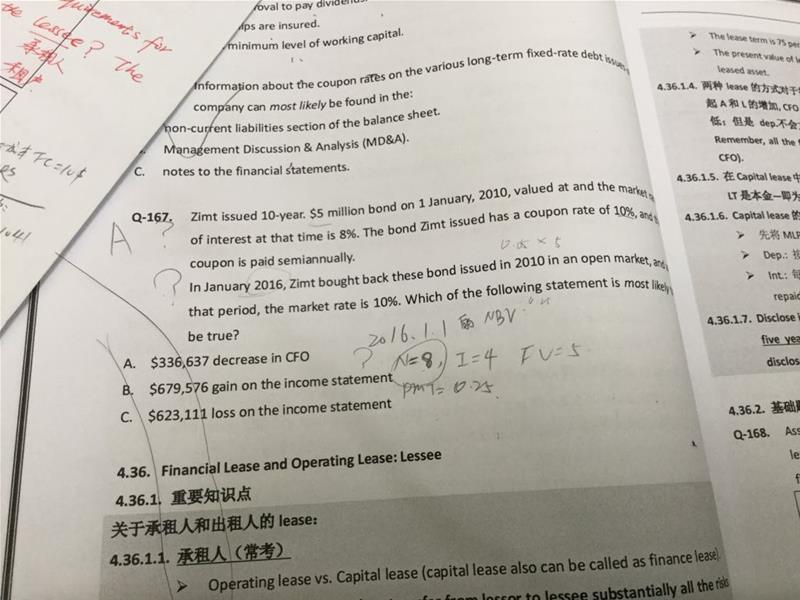 quirements for
the lessee? The
承租人
FC=10$
roval to pay dividends.
ips are insured.
minimum level of working capital.
Information about the coupon rates on the various long-term fixed-rate debt issues
company can most likely be found in the:
non-current liabilities section of the balance sheet.
Management Discussion & Analysis (MD&A).
C. notes to the financial statements.
Q-167. Zimt issued 10-year. $5 million bond on 1 January, 2010, valued at and the market
of interest at that time is 8%. The bond Zimt issued has a coupon rate of 10%, and
coupon is paid semiannually.
A ?
0.05 × 5
In January 2016, Zimt bought back these bond issued in 2010 in an open market, and
that period, the market rate is 10%. Which of the following statement is most likely
be true?
?
2016.1.1 的 NBV
A. $336,637 decrease in CFO
? N=8, I=4 FV=5
B. $679,576 gain on the income statement
PMT= 0.25
C. $623,111 loss on the income statement
4.36. Financial Lease and Operating Lease: Lessee
4.36.1. 重要知识点
关于承租人和出租人的 lease:
4.36.1.1. 承租人（常考）
➢ Operating lease vs. Capital lease (capital lease also can be called as finance lease).
from lessor to lessee substantially all the risks
➢ The lease term is 75 per
➢ The present value of le
leased asset.
4.36.1.4. 两种 lease 的方式对于
起 A 和 L 的增加, CFO
低；但是 dep.不会
Remember, all the
CFO).
4.36.1.5. 在 Capital lease 中
LT 是本金一即为
4.36.1.6. Capital lease 的
➢ 先将 MLP
➢ Dep.: 按
➢ Int.: 每
repaid
4.36.1.7. Disclose i
five yea
disclos
4.36.2. 基础题
Q-168. Ass
le
f